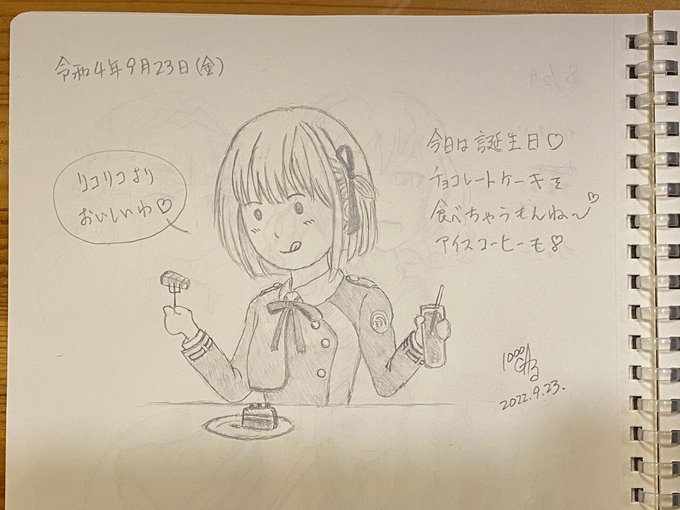 令和4年9月23日(金)
リコリコより
おいしいわ♡
今日は誕生日♡
チョコレートケーキを
食べちゃうもんね〜♡
アイスコーヒーも
2022.9.23.